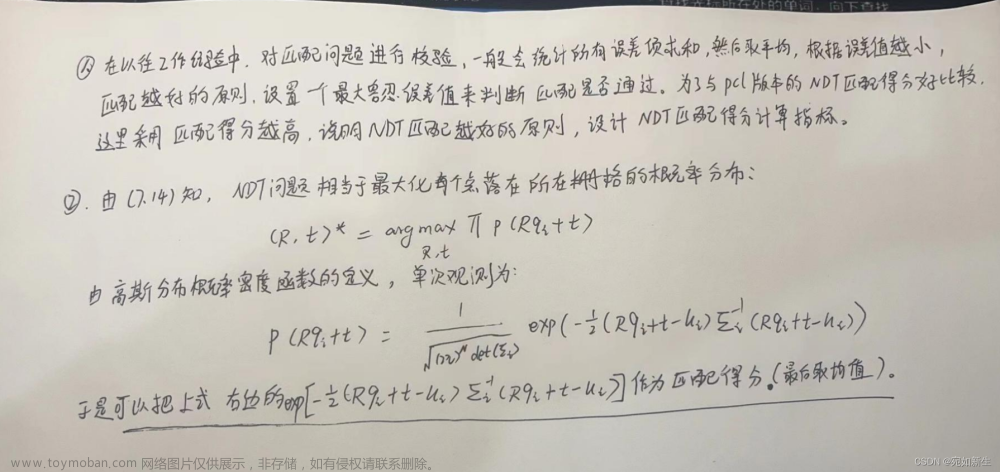 以找光标所在处的单词，向下查找
① 在以往工作经验中，对匹配问题进行校验，一般会统计所有误差项求和，然后取平均，根据误差值越小，
匹配越好的原则，设置一个最大容忍误差值来判断匹配是否通过。为了与pcl版本的NDT匹配得分好比较，
这里采用匹配得分越高，说明NDT匹配越好的原则，设计NDT匹配得分计算指标。
②. 由(7.14)知，NDT问题相当于最大化每个点落在所在栅格的概率分布：
(R,t)* = argmax Π P(Rqᵢ+t)
R,t
由高斯分布概率密度函数的定义，单次观测为：
P(Rqᵢ+t) = 1/√((2π)ⁿ det(Σᵢ)) exp(-½(Rqᵢ+t-uᵢ)Σᵢ⁻¹(Rqᵢ+t-uᵢ))
于是可以把上式右边的exp[-½(Rqᵢ+t-uᵢ)Σᵢ⁻¹(Rqᵢ+t-uᵢ)]作为匹配得分。(最后取均值)。
www.toymoban.com 网络图片仅供展示，非存储，如有侵权请联系删除。
CSDN @宛如新生